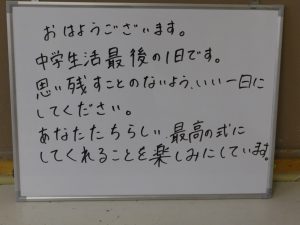 おはようございます。
中学生活最後の1日です。
思い残すことのないよう、いい一日に
してください。
あなたたちらしい、最高の式に
してくれることを楽しみにしています。